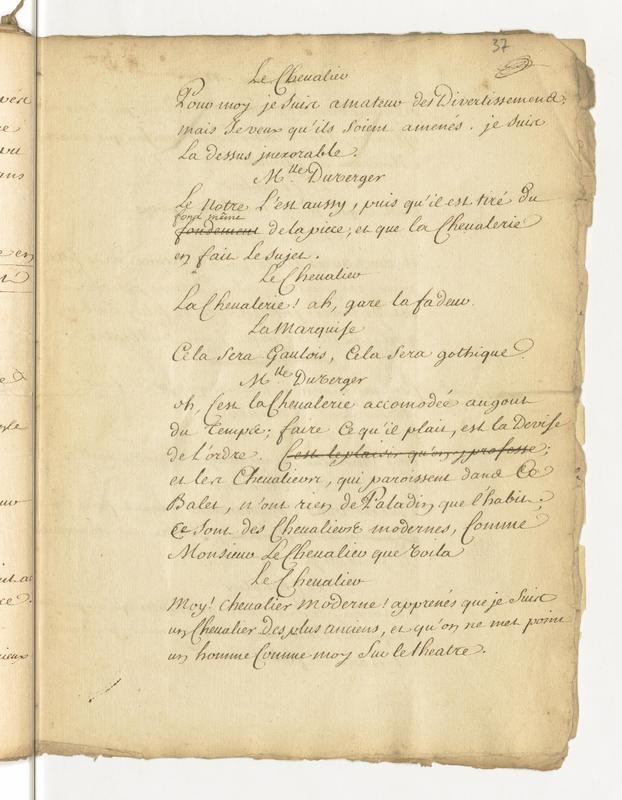 37
Le Chevalier
Pour moy je suis amateur des Divertissemens,
mais je veux qu'ils soient amenés. je suis
La dessus inexorable.
M.lle Duverger
Le Notre L'est aussy, puis qu'il est tiré du
fond même
fondement de la piece, et que la Chevalerie
en fait le sujet.
Le Chevalier
La Chevalerie! ah, gare la fadeur.
La Marquise
Cela sera Gaulois, Cela sera gothique.
M.lle Duverger
oh, C'est la Chevalerie accomodée au gout
du temps; faire Ce qu'il plait, est la Devise
de l'ordre. C'est le plaisir qu'on y professe;
et les Chevaliers, qui paroissent dans Ce
Balet, n'ont rien de Paladin que l'habit.
Ce sont des Chevaliers modernes, Comme
Monsieur Le Chevalier que voila
Le Chevalier
Moy! Chevalier Moderne! apprenés que je suis
un Chevalier Des plus anciens, et qu'on ne met point
un homme Comme moy sur le theatre.